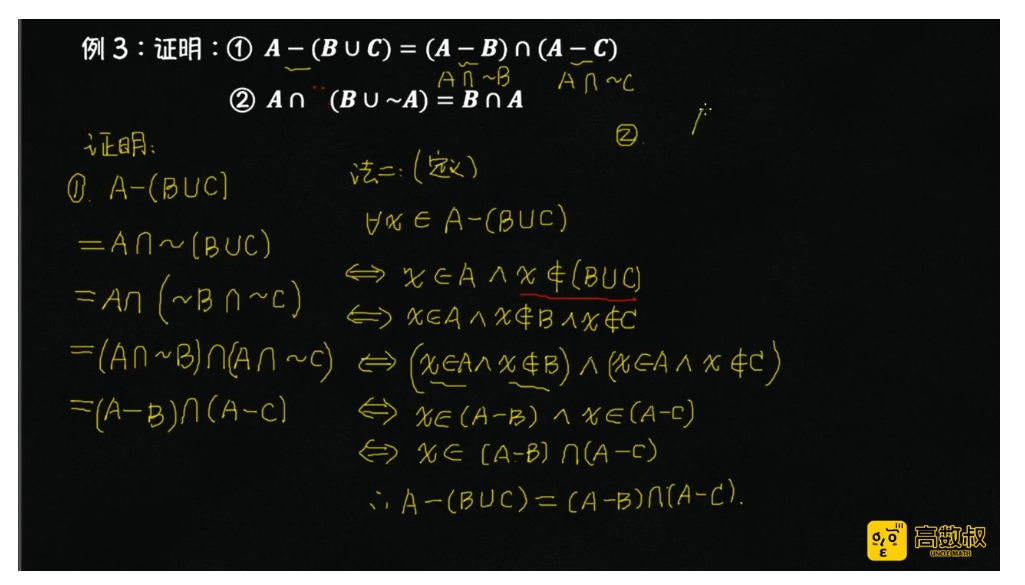 例 3：证明：① A − (B ∪ C) = (A − B) ∩ (A − C)
A∩~B A∩~C
② A ∩ (B ∪ ~A) = B ∩ A
②.
证明:
①. A-(B∪C)
=A∩~(B∪C)
=A∩(~B∩~C)
=(A∩~B)∩(A∩~C)
=(A-B)∩(A-C)
法二:(定义)
∀x∈A-(B∪C)
⇔ x∈A∧x∉(B∪C)
⇔ x∈A∧x∉B∧x∉C
⇔ (x∈A∧x∉B)∧(x∈A∧x∉C)
⇔ x∈(A-B)∧x∈(A-C)
⇔ x∈(A-B)∩(A-C)
∴A-(B∪C)=(A-B)∩(A-C).
高数叔
UNCLE MATH